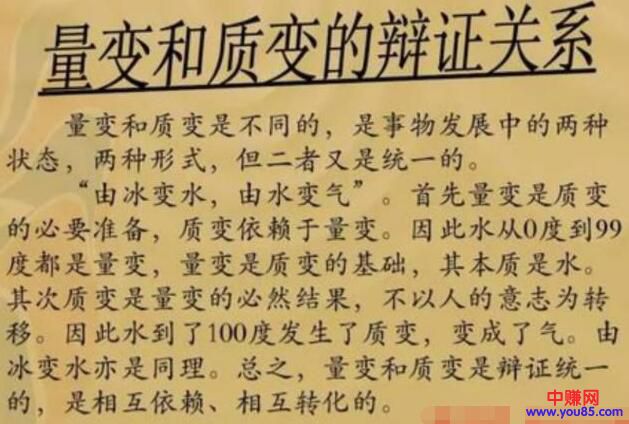 量变和质变的辩证关系
量变和质变是不同的，是事物发展中的两种
状态，两种形式，但二者又是统一的。
“由冰变水，由水变气”。首先量变是质变
的必要准备，质变依赖于量变。因此水从0度到99
度都是量变，量变是质变的基础，其本质是水。
其次质变是量变的必然结果，不以人的意志为转
移。因此水到了100度发生了质变，变成了气。由
冰变水亦是同理。总之，量变和质变是辩证统一
的，是相互依赖、相互转化的。
中赚网
www.you85.com